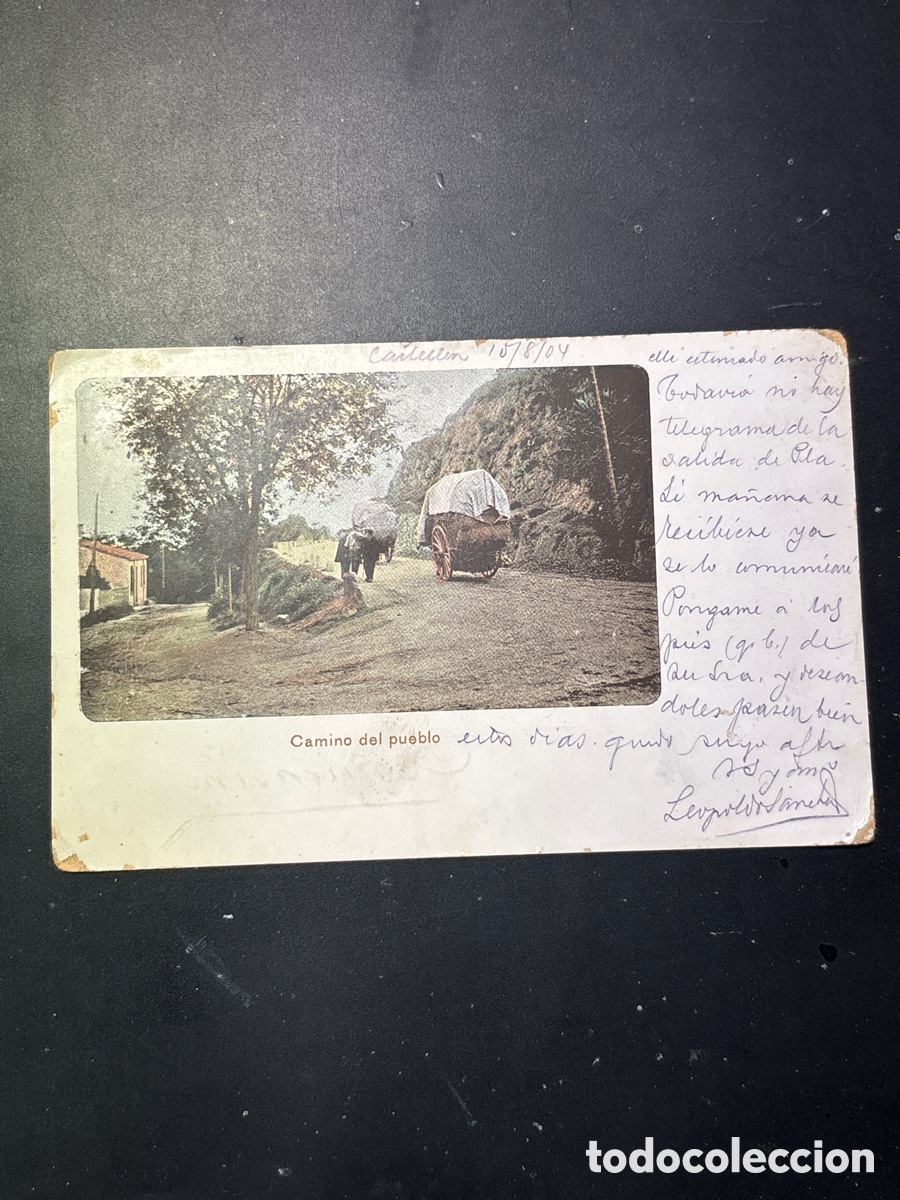 Castellón 10/8/04
Mi estimado amigo:
Todavia no hay
telegrama de la
salida de Pla.
Si mañana se
recibiese ya
se lo comunicaré
Pongame á los
piés (q. b.) de
su Sra. y desean-
doles pasen bien
Camino del pueblo
estos dias. quedo suyo afmo
SS y amº
Leopoldo Sánchez
todocoleccion